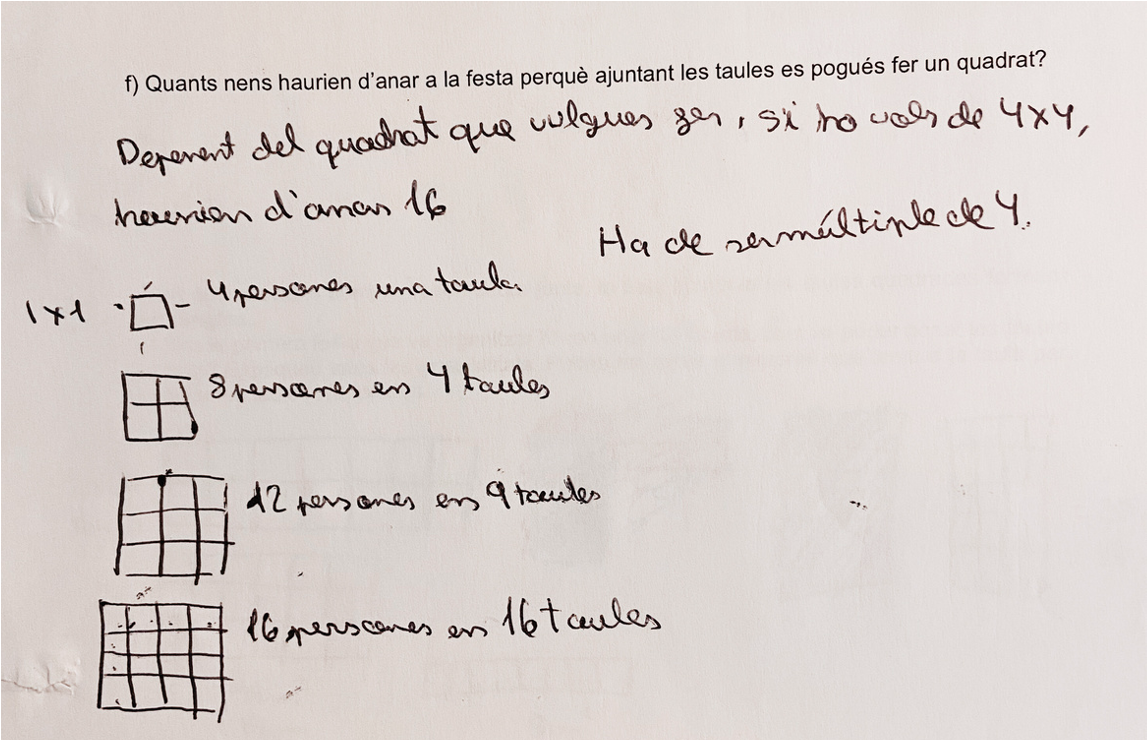 f) Quants nens haurien d'anar a la festa perquè ajuntant les taules es pogués fer un quadrat?
Depenent del quadrat que vulgues fer, si ho vols de 4x4,
haurien d'anar 16
Ha de ser múltiple de 4.
1x1 4 persones una taula
8 persones en 4 taules
12 persones en 9 taules
16 persones en 16 taules